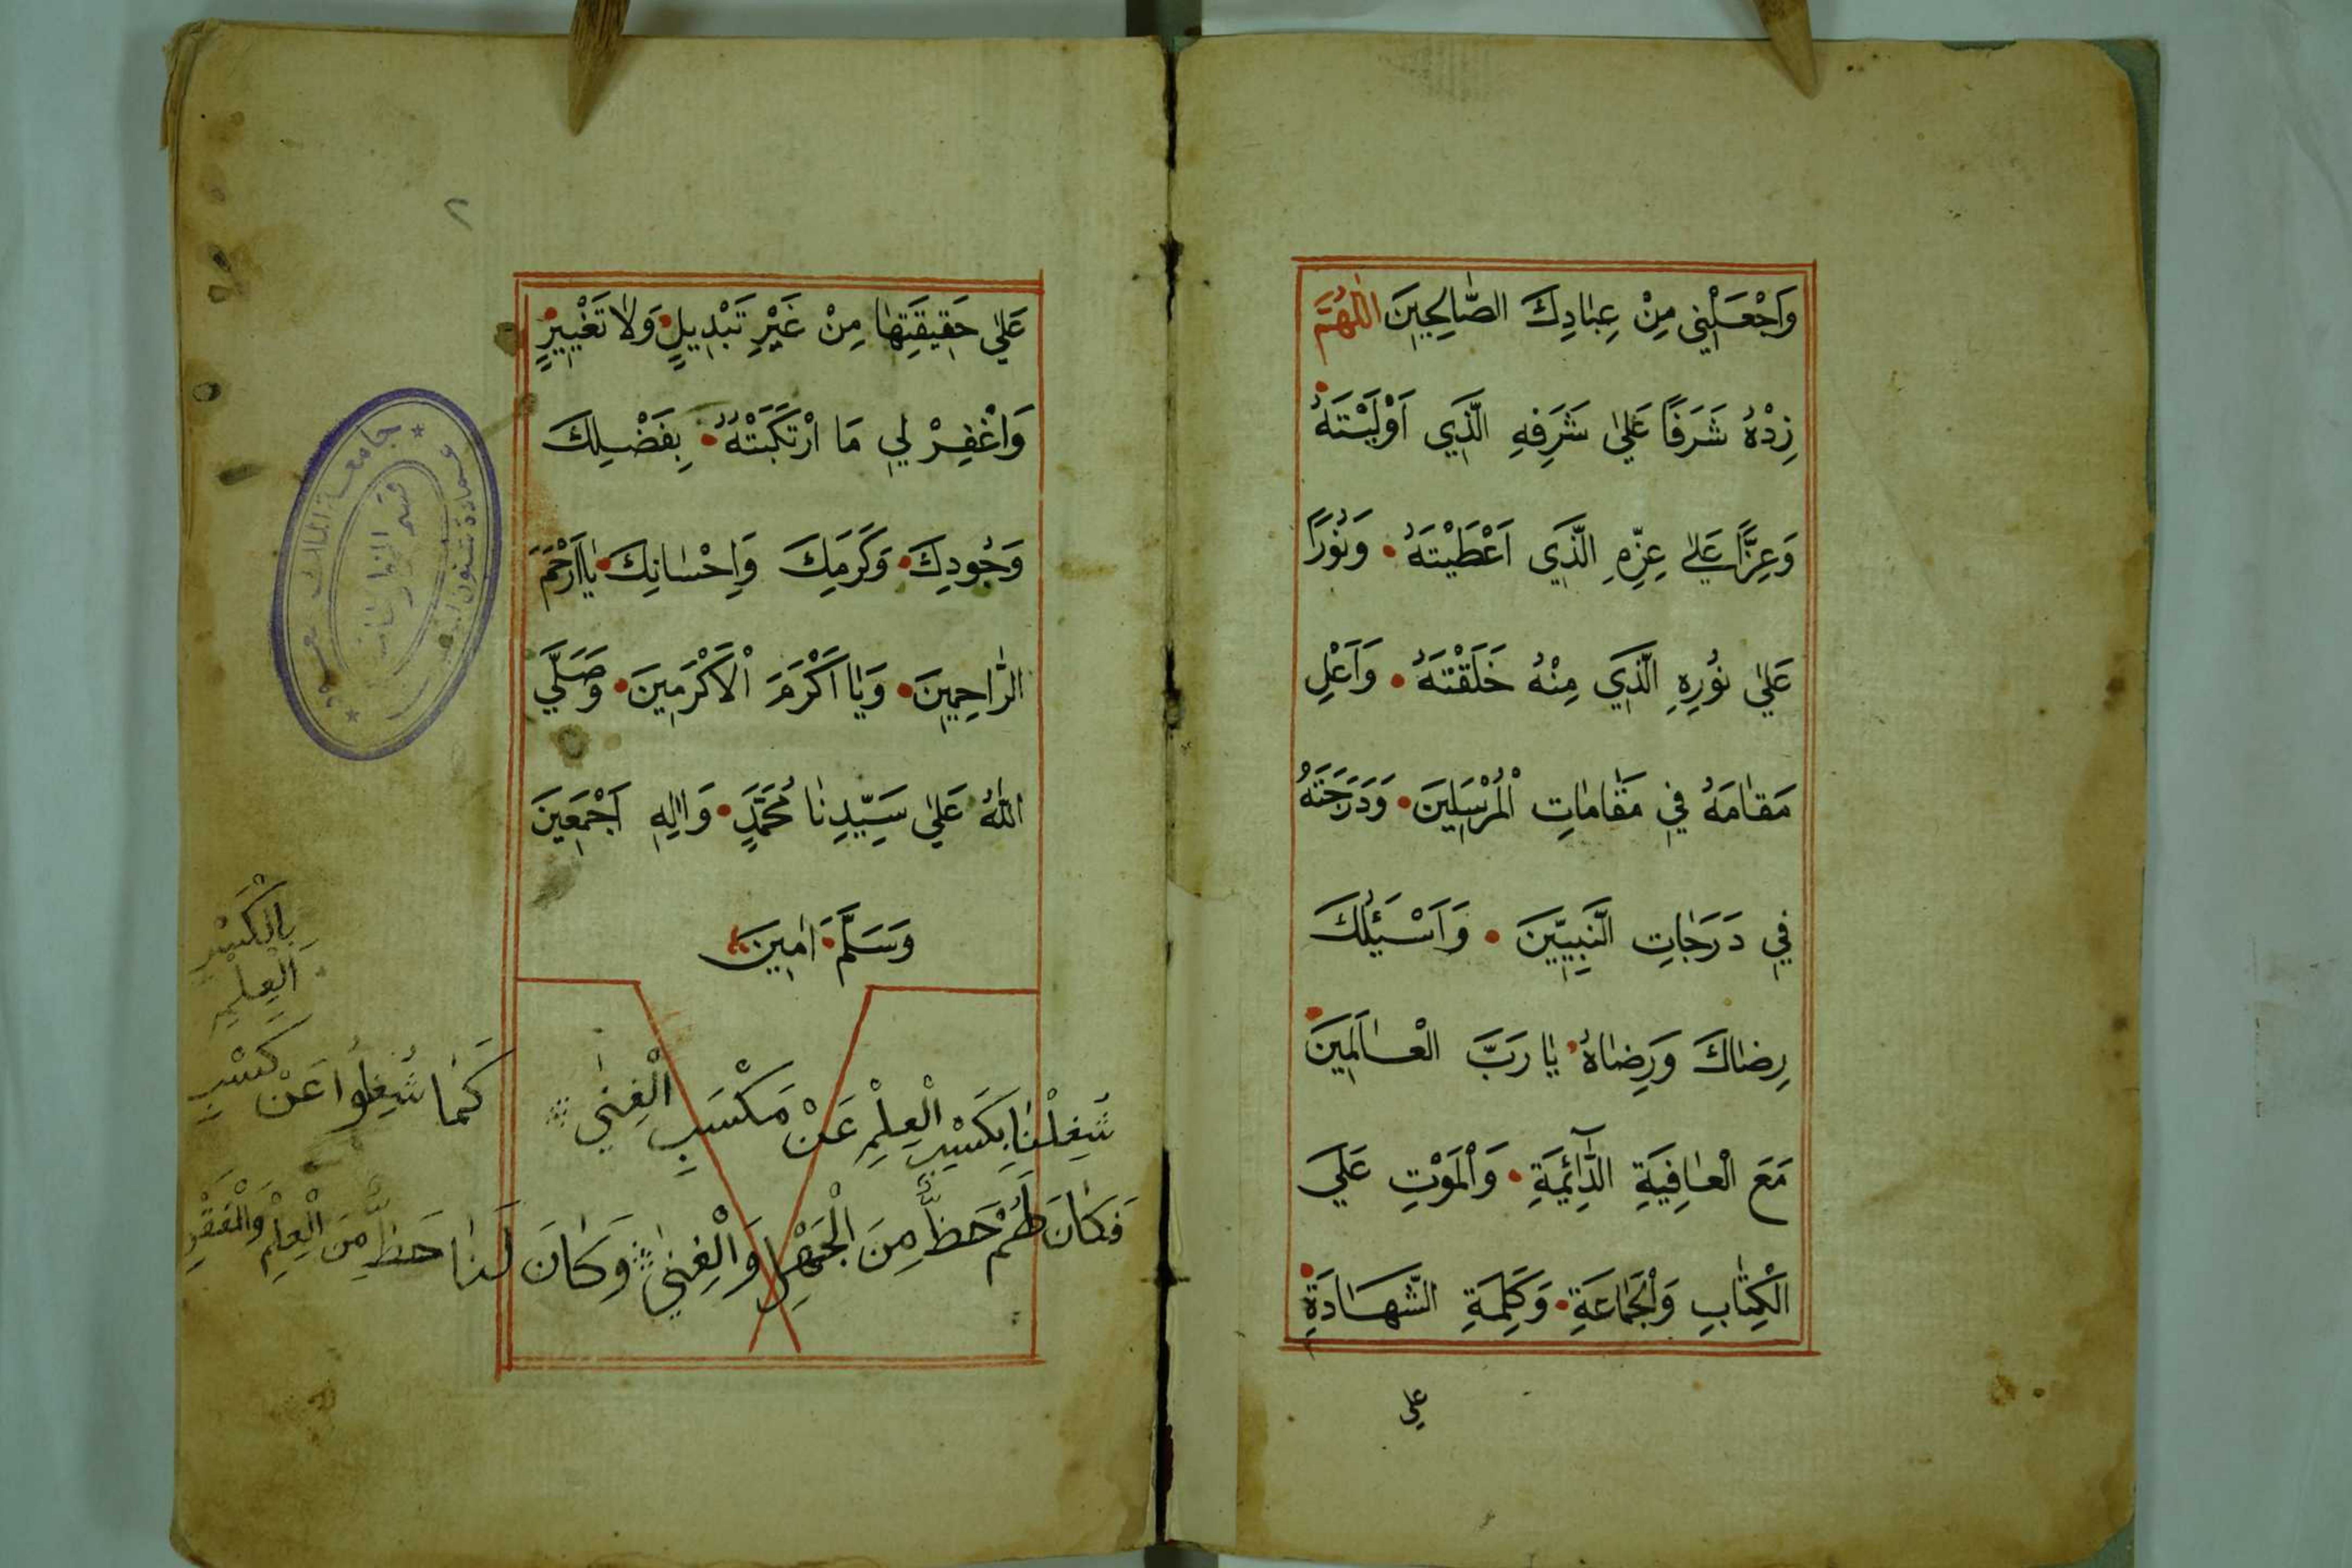 وَاجْعَلْنِي مِنْ عِبَادِكَ الصَّالِحِينَ اللّٰهُمَّ
زِدْهُ شَرَفًا عَلٰي شَرَفِهِ الَّذِي اَوْلَيْتَهُ
وَعِزًّا عَلٰي عِزِّهِ الَّذِي اَعْطَيْتَهُ • وَنُورًا
عَلٰي نُورِهِ الَّذِي مِنْهُ خَلَقْتَهُ • وَاَعْلِ
مَقَامَهُ فِي مَقَامَاتِ الْمُرْسَلِينَ • وَدَرَجَتَهُ
فِي دَرَجَاتِ النَّبِيِّينَ • وَاَسْئَلُكَ
رِضَاكَ وَرِضَاهُ • يَا رَبَّ الْعَالَمِينَ
مَعَ الْعَافِيَةِ الدَّائِمَةِ • وَالْمَوْتِ عَلَي
الْكِتَابِ وَالْجَمَاعَةِ • وَكَلِمَةِ الشَّهَادَةِ
علي
٢
عَلٰي حَقِيقَتِهَا مِنْ غَيْرِ تَبْدِيلٍ • وَلَا تَغْيِيرٍ
وَاغْفِرْ لِي مَا ارْتَكَبْتُهُ • بِفَضْلِكَ
وَجُودِكَ • وَكَرَمِكَ وَاِحْسَانِكَ • يَا اَرْحَمَ
الرَّاحِمِينَ • وَيَا اَكْرَمَ الْاَكْرَمِينَ • وَصَلَّي
اللّٰهُ عَلٰي سَيِّدِنَا مُحَمَّدٍ • وَاٰلِهِ اَجْمَعِينَ
وَسَلَّمَ • اٰمِينَ
شُغِلْنَا بِكَسْبِ الْعِلْمِ عَنْ مَكْسَبِ الْغِنٰي كَمَا شُغِلُوا عَنْ كَسْبِ الْعِلْمِ بِالْكَسْبِ
فَكَانَ لَهُمْ حَظٌّ مِنَ الْجَهْلِ وَالْغِنٰي وَكَانَ لَنَا حَظٌّ مِنَ الْعِلْمِ وَالْفَقْرِ
جامعة الملك سعود
عمادة شئون
قسم